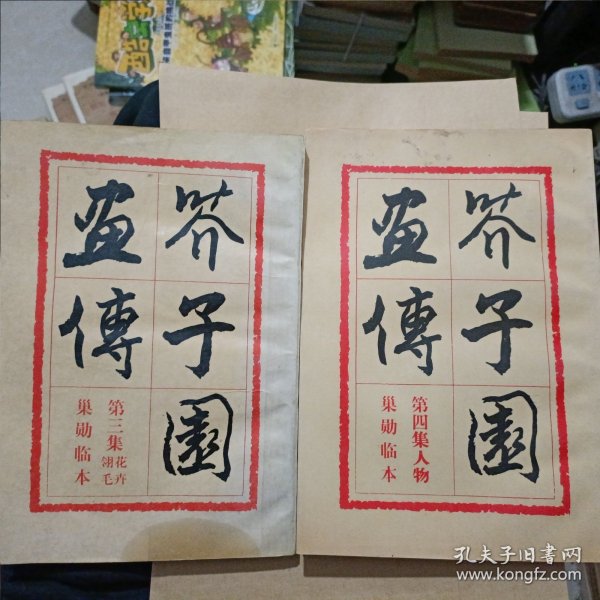 芥子園
畫傳
第三集花卉翎毛
巢勋临本
芥子園
畫傳
第四集人物
巢勋临本
孔夫子旧书网
www.kongfz.com